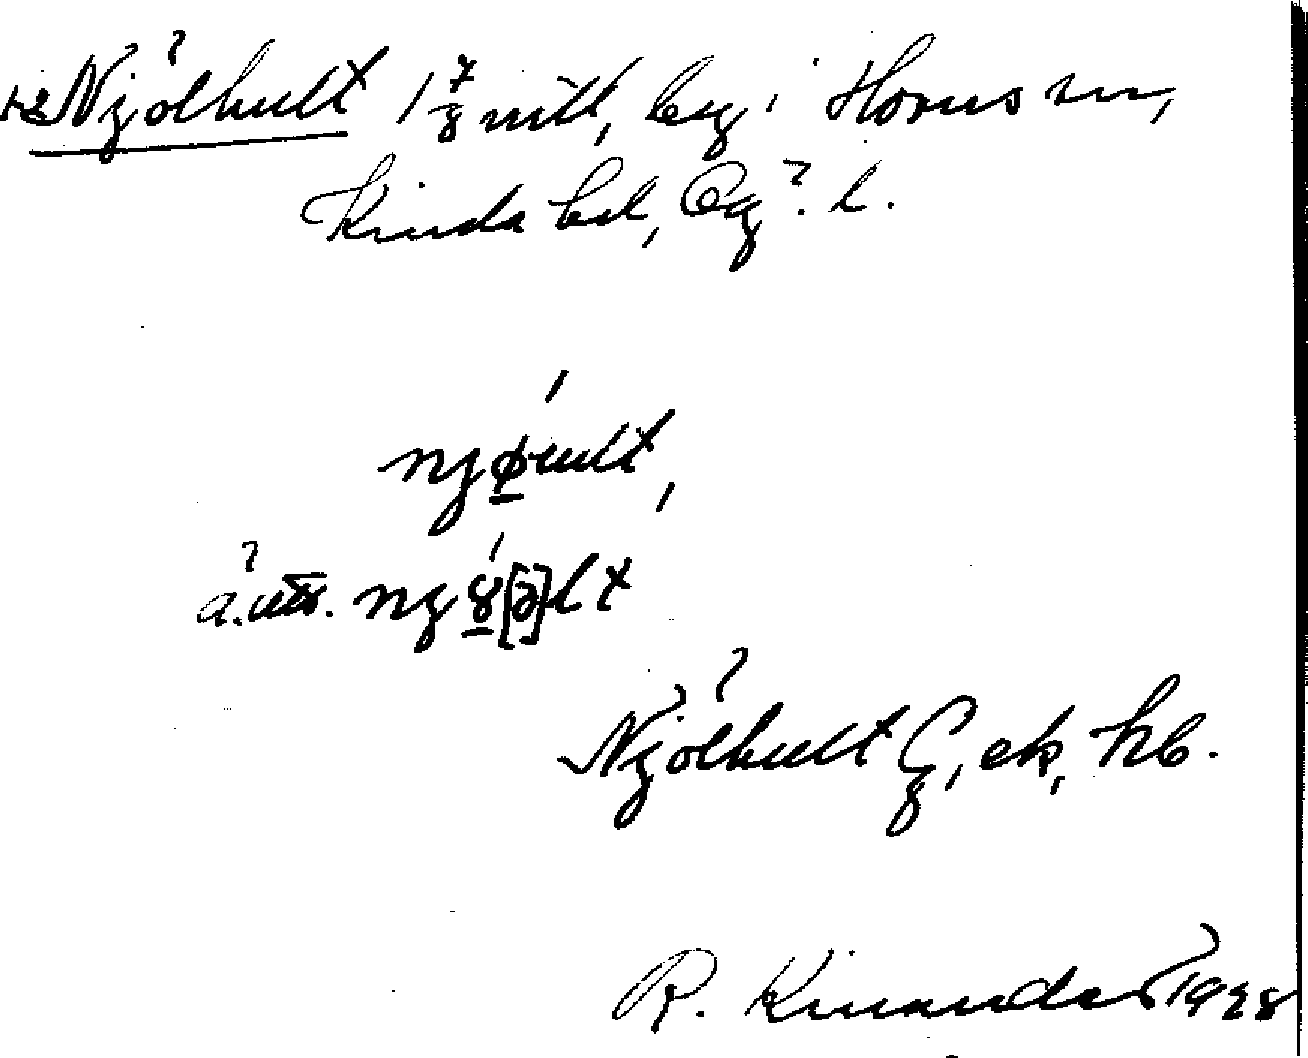 Njölhult 1 7/8 mtl, by i Horns sn,
Kinda hd, Ög. l.
njøult,
ä. utt. njɣ[ə]lt
Njölhult G, ek, kb.
R. Kinander 1928